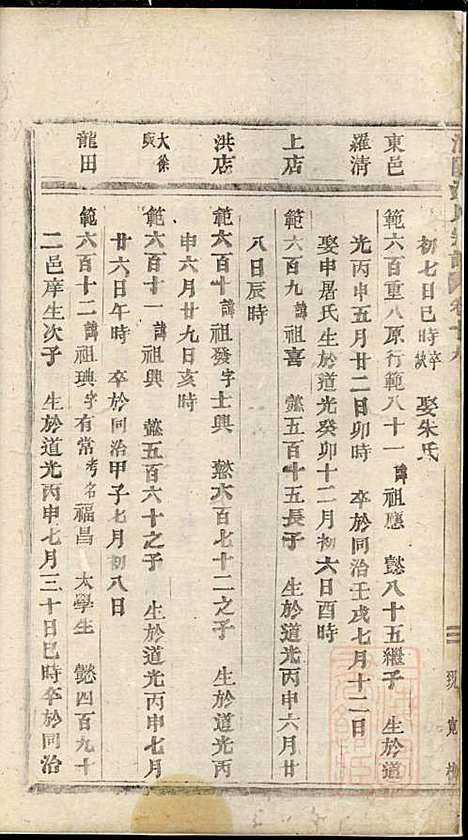 初七日巳時卒缺　娶朱氏
東邑
範六百重八原行範八十一　諱祖應　懿八十五繼子　生於道
羅清
光丙申五月廿二日卯時　卒於同治壬戌七月十二日
娶申屠氏生於道光癸卯十二月初六日酉時
上店
範六百九　諱祖喜　懿五百十五長子　生於道光丙申六月廿
八日辰時
洪店
範六百十　諱祖發字士興　懿六百七十二之子　生於道光丙
申六月廿九日亥時
大徐
範六百十一　諱祖興　懿五百六十之子　生於道光丙申七月
廿六日午時　卒於同治甲子七月初八日
龍田
範六百十二　諱祖琠字有常考名福昌　太學生　懿四百九十
二邑庠生次子　生於道光丙申七月三十日巳時卒於同治